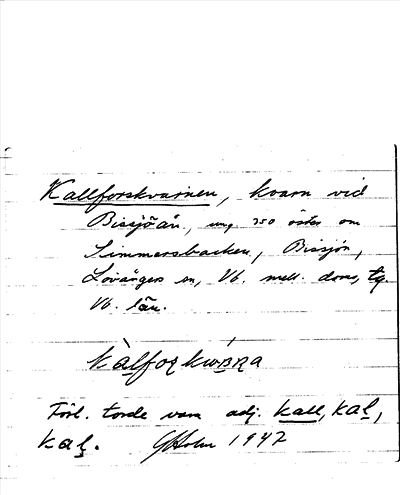 Kallforskvarnen, kvarn vid
Bissjöån, ung. 350 öster om
Simmersbacken, Bissjön,
Lövångers sn, Vb. mell. doms. tg.
Vb. län.
kàlfoʀkwàʀa
Förl. torde vara adj. kall, kaḷ,
kaḷ. GHolm 1947